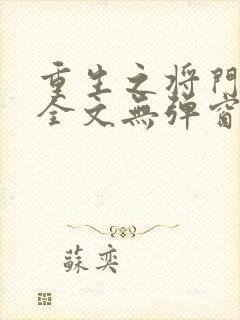 重生之將門
全文無彈窗
蘇奕